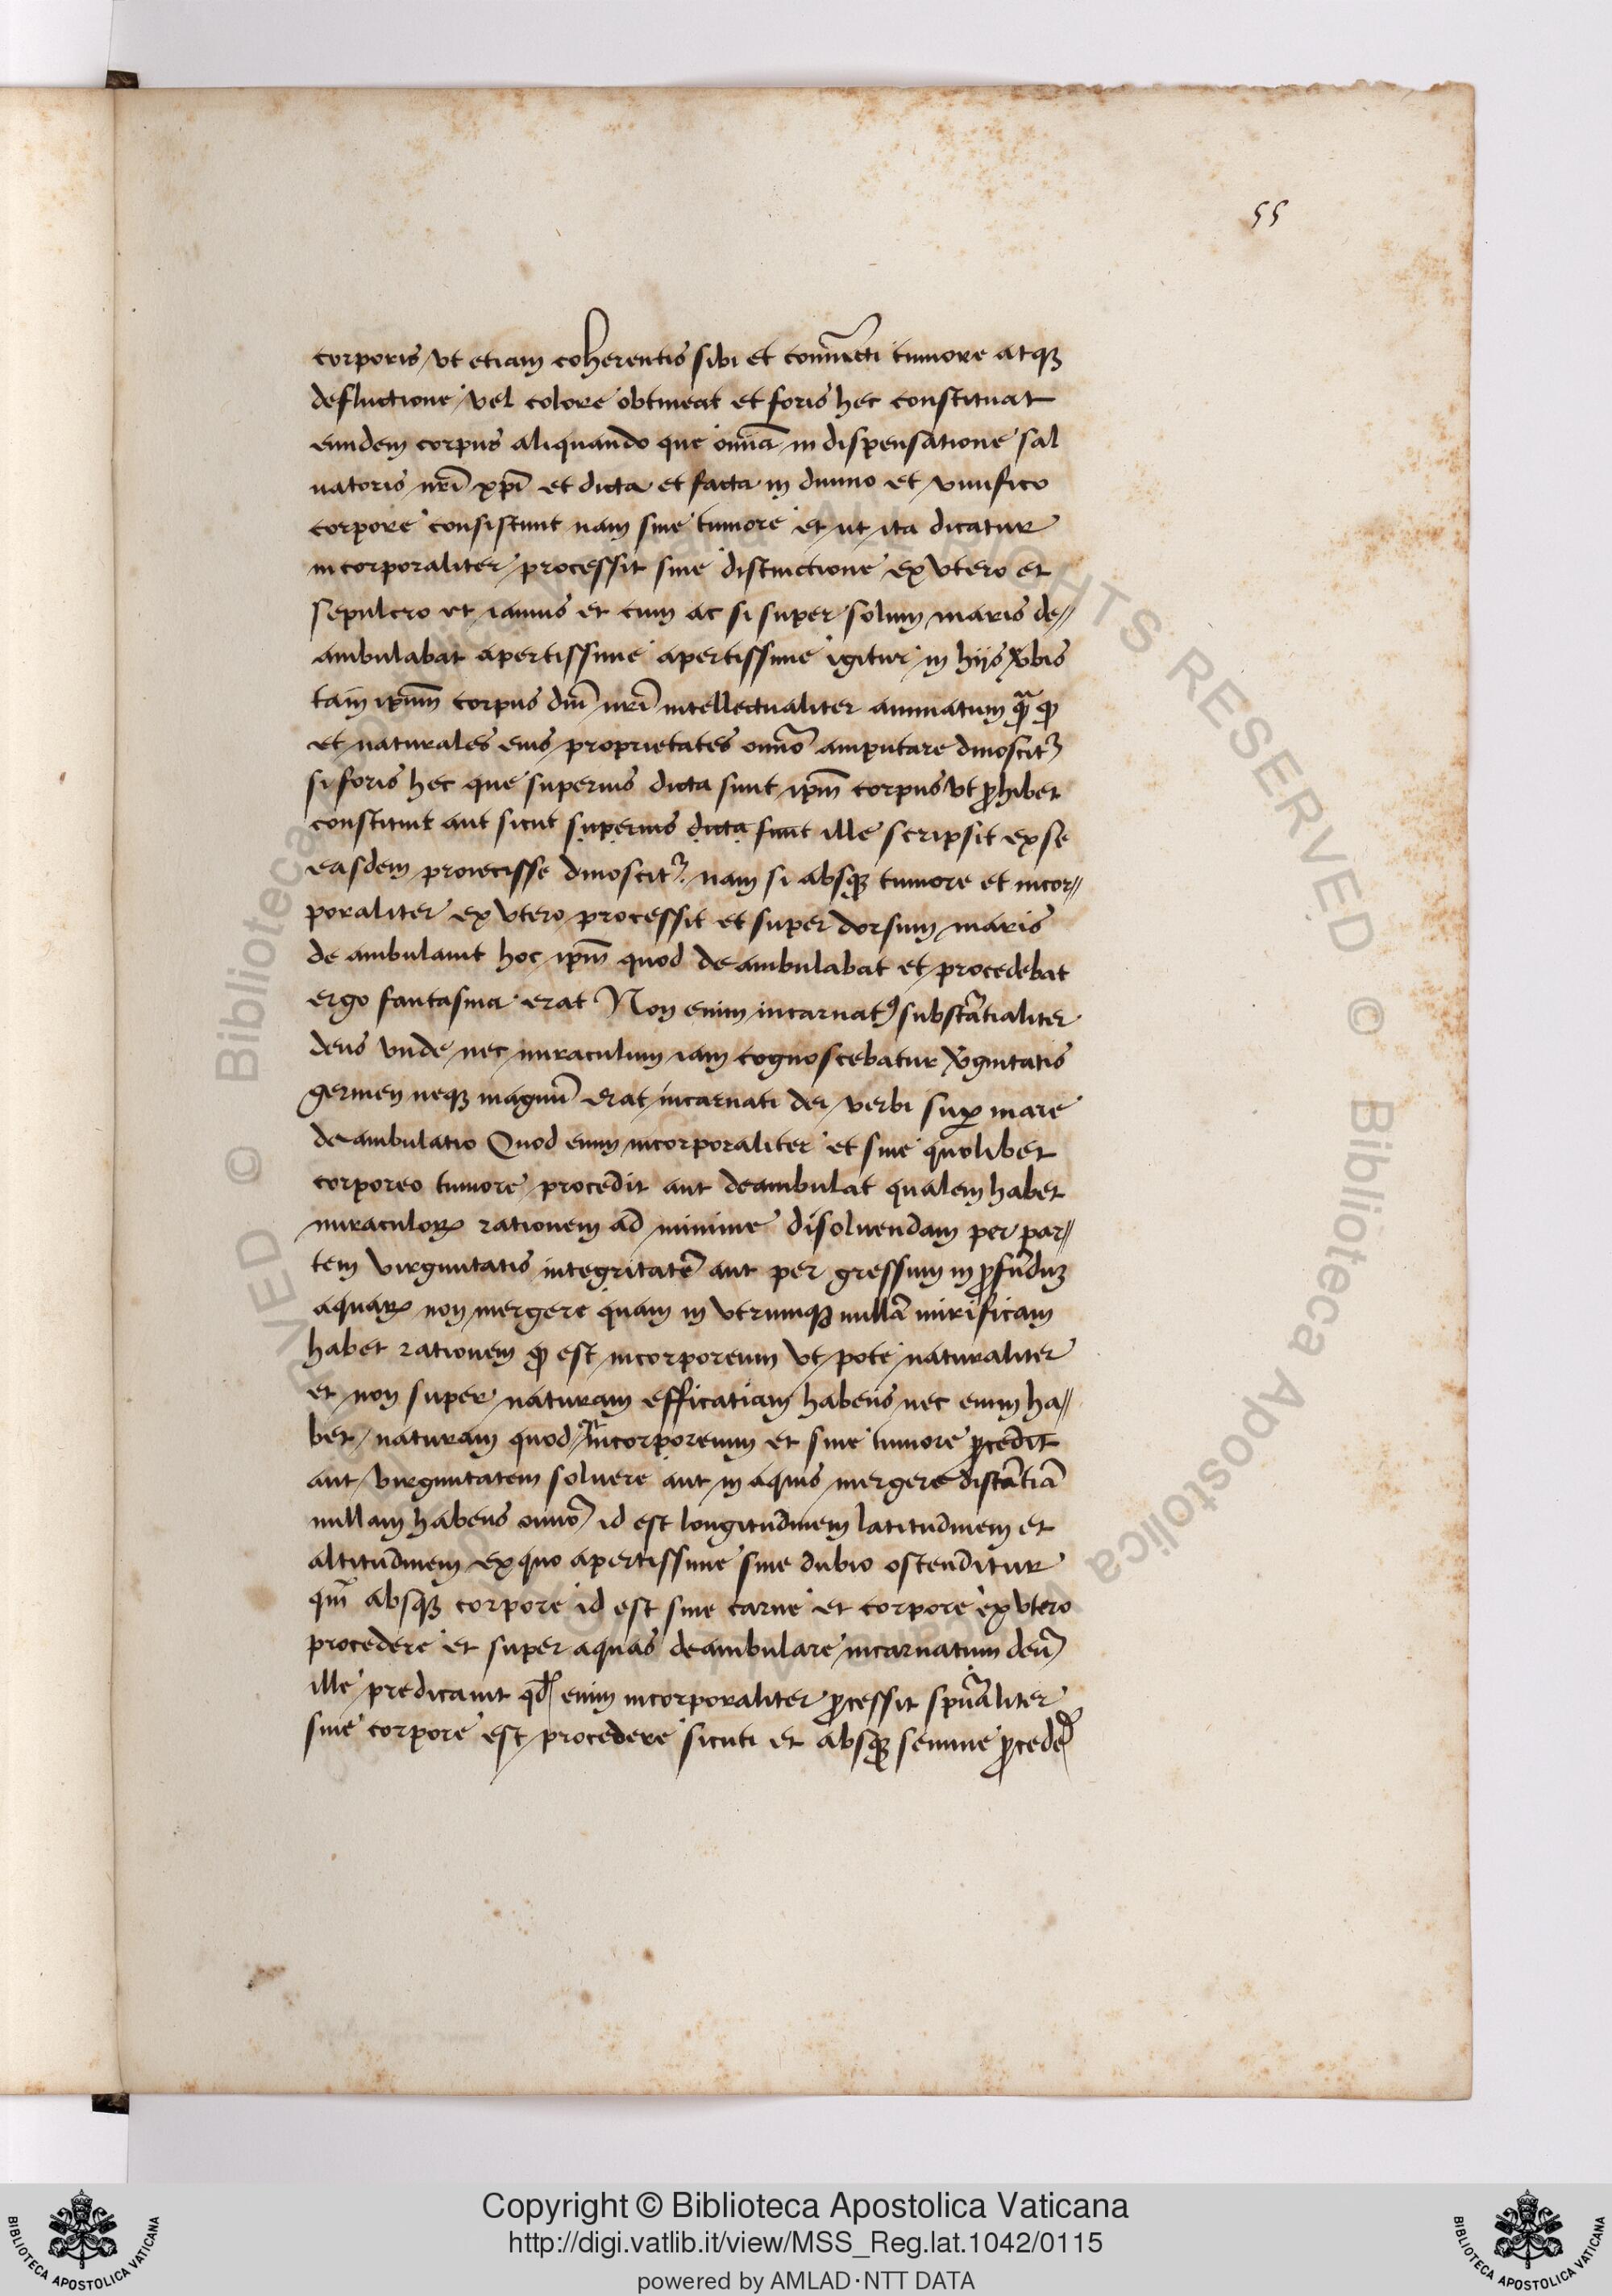 55
corporis vt etiam coherentis sibi et tumore atqꝫ
defluctione vel colore obtineat et foris hec constituat
eundem corpus aliquando que om̄ia in dispensatione sal
uatoris nr̄i xp̄i et dicta et facta in diuino et viuifico
corpore consistunt nam sine tumore et ut ita dicatur
incorporaliter processit sine distinctione ex vtero et
sepulcro vt ianuis et cum ac si super solum maris de//
ambulabat apertissime apertissime igitur in hijs v̄bis
tam ip̄ium corpus dn̄i nr̄i intellectualiter animatum
et naturales eius proprietates om̄o amputare dinoscitᷣ
si foris hec que superius dicta sunt ip̄m corpus vt ꝓhibet
constituit aut sicut superius dicta sunt ille scripsit ex se
easdem proiecisse dinoscitᷣ nam si absqꝫ tumore et incor//
poraliter ex vtero processit et super dorsum maris
de ambulauit hoc ip̄m quod deambulabat et procedebat
ergo fantasma erat Non enim incarnatꝰ substātialiter
deus vnde nec miraculum iam cognoscebatur v̄ginitatis
germen neqꝫ magnū erat incarnati dei verbi suꝑ mare
deambulatio Quod enim incorporaliter et sine quolibet
corporeo tumore procedit aut deambulat qualem habet
miraculoꝝ rationem ad minime disoluendam per par//
tem virginitatis integritatē aut per gressum in ꝓfūdum
aquaꝝ non mergere quam in vtrumqꝫ nullā mirificam
habet rationem ꝙ est incorporeum vt pote naturaliter
et non super naturam efficatiam habens nec enim ha//
bet naturam quod incorporeum et sine tumore ꝓcedit
aut virginitatem soluere aut in aquis mergere distātiā
nullam habens om̄o id est longitudinem latitudinem et
altitudinem ex quo apertissime sine dubio ostenditur
qm̄ absqꝫ corpore id est sine carne et corpore ex vtero
procedere et super aquas deambulare incarnatum deū
ille predicauit qd̄ enim incorporaliter ꝓcessit spūaliter
sine corpore est procedere sicuti et absqꝫ semine ꝓceder̄
Copyright © Biblioteca Apostolica Vaticana
http://digi.vatlib.it/view/MSS_Reg.lat.1042/0115
powered by AMLAD·NTT DATA